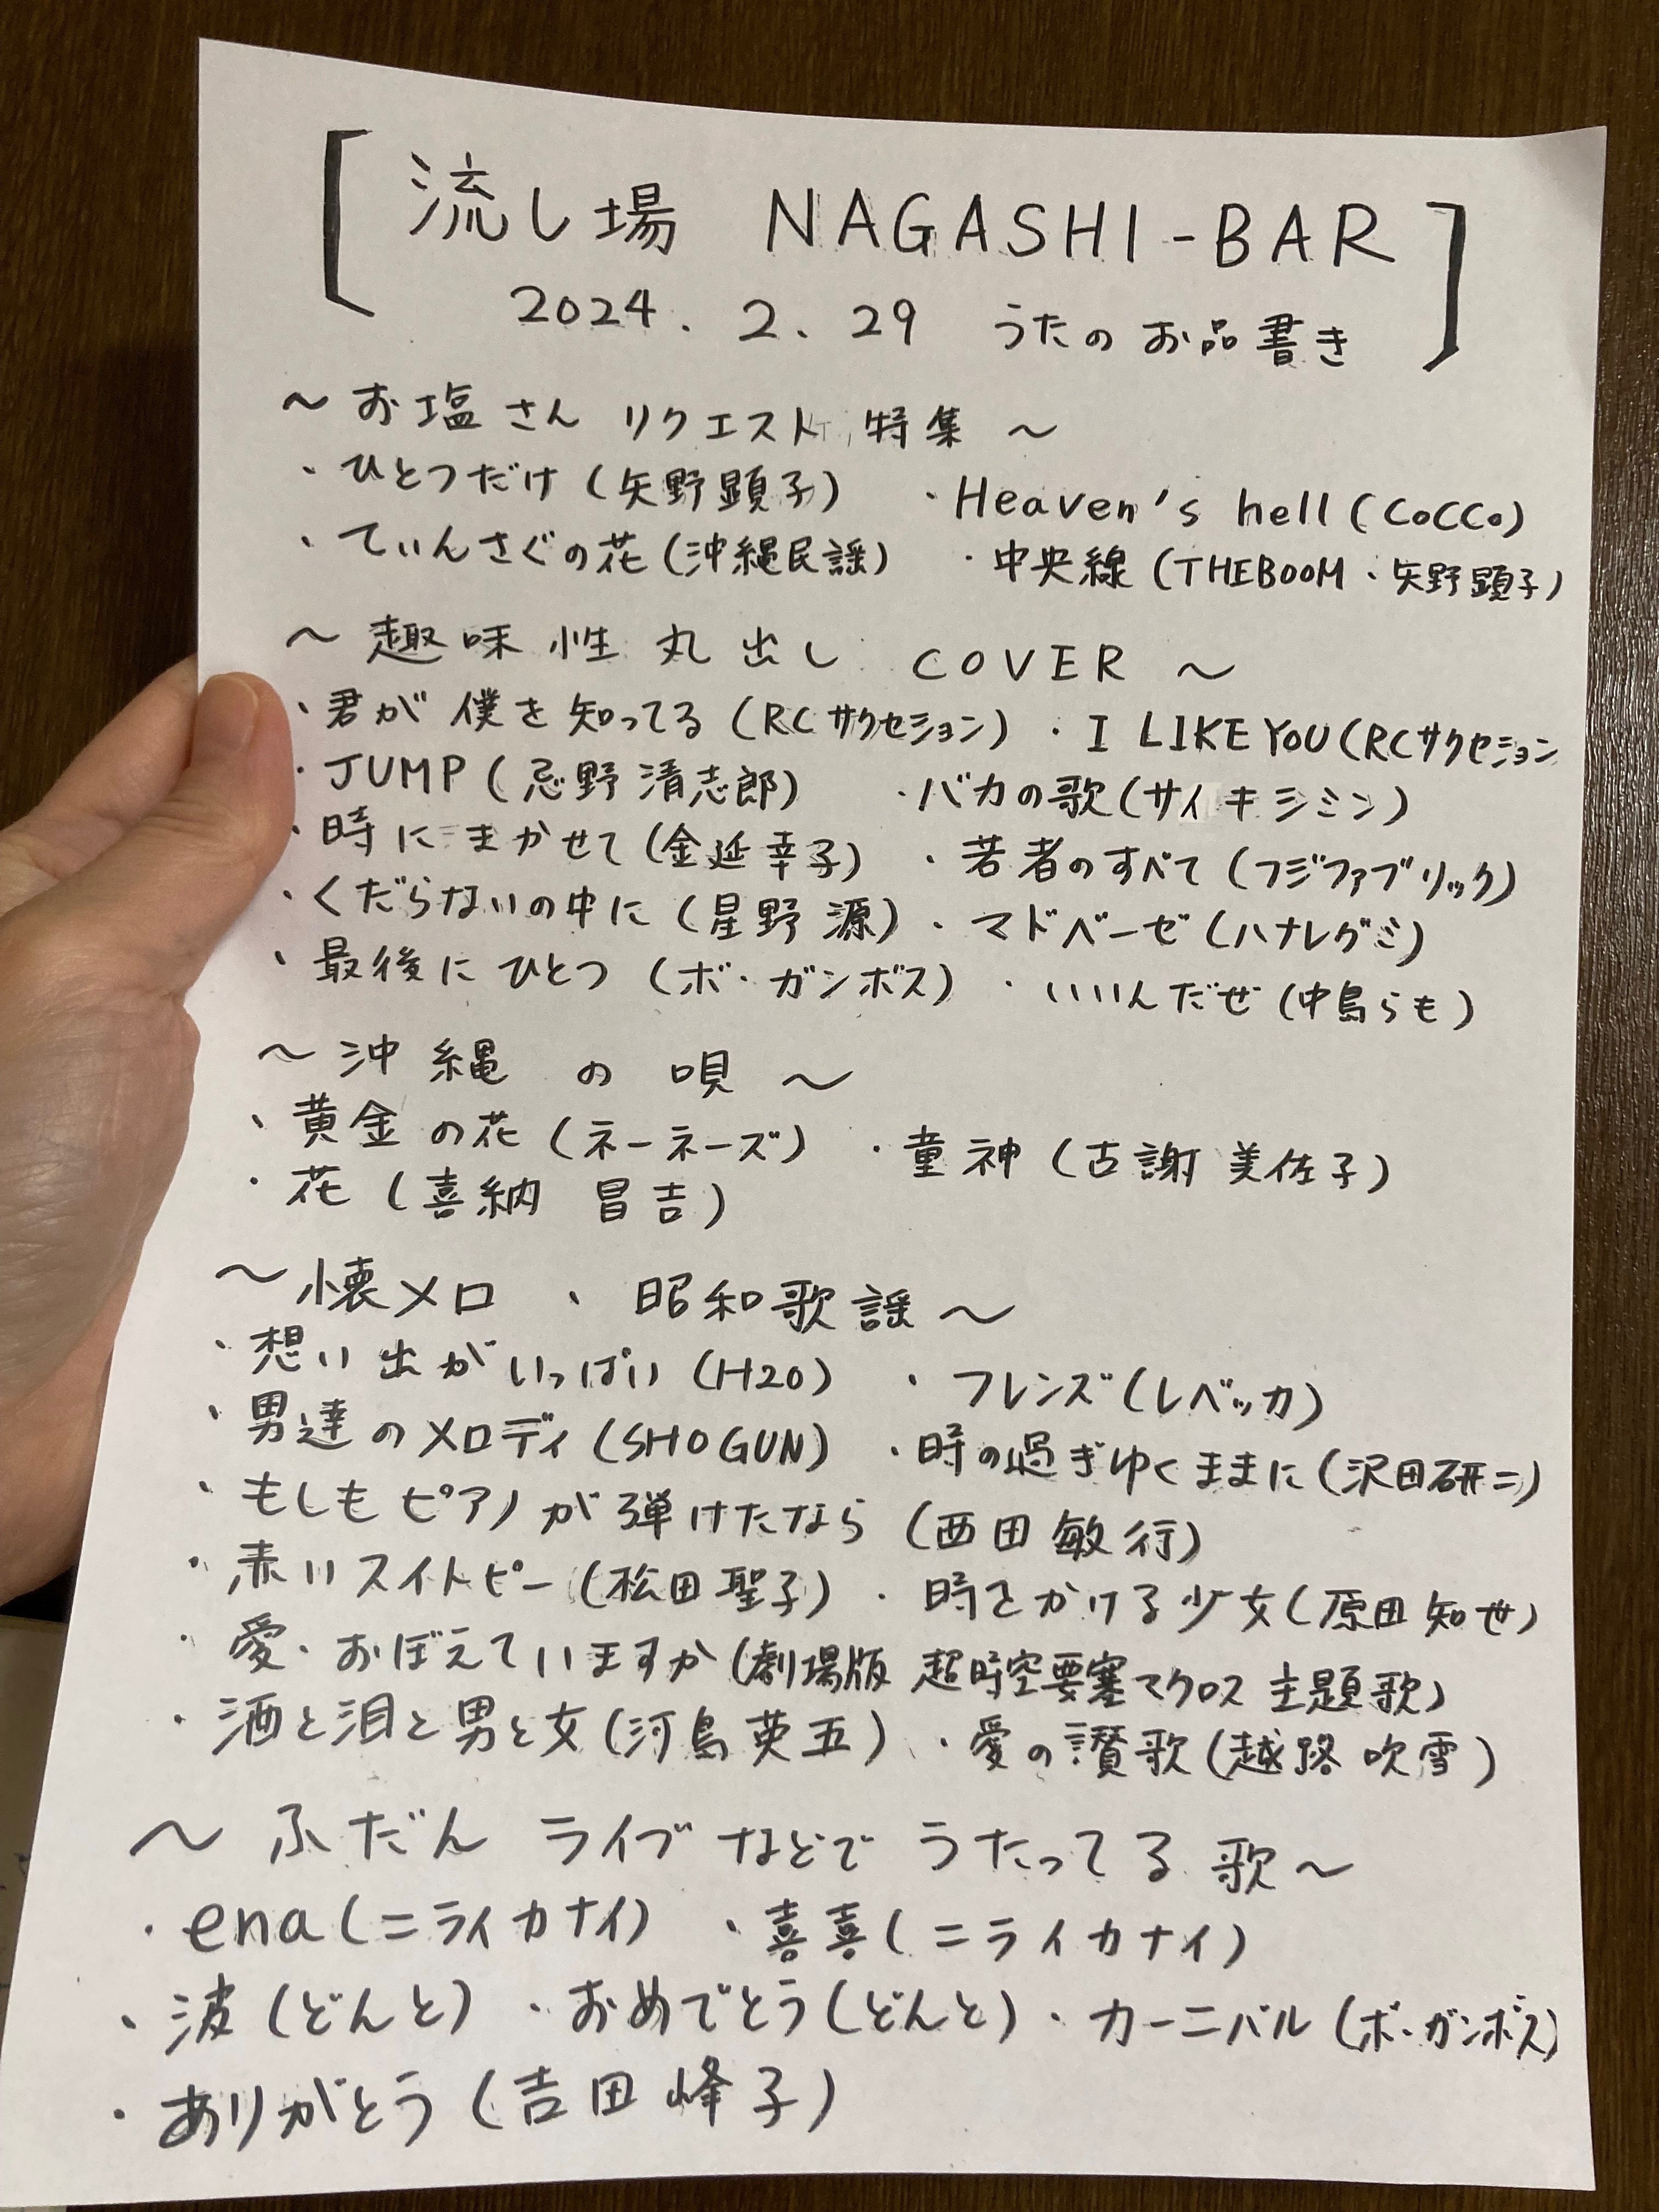 [流し場 NAGASHI-BAR
2024.2.29 うたのお品書き]
〜お塩さん リクエスト 特集〜
・ひとつだけ(矢野顕子) ・Heaven's hell(CoCCo)
・てぃんさぐの花(沖縄民謡) ・中央線(THEBOOM・矢野顕子)
〜趣味性丸出し COVER〜
・君が僕を知ってる(RCサクセション) ・I LIKE YOU(RCサクセション
・JUMP(忌野清志郎) ・バカの歌(サイキシミン)
・時にまかせて(金延幸子) ・若者のすべて(フジファブリック)
・くだらないの中に(星野源) ・マドベーゼ(ハナレグミ)
・最後にひとつ(ボ・ガンボス) ・いいんだぜ(中島らも)
〜沖縄の唄〜
・黄金の花(ネーネーズ) ・童神(古謝美佐子)
・花(喜納昌吉)
〜懐メロ、昭和歌謡〜
・想い出がいっぱい(H2O) ・フレンズ(レベッカ)
・男達のメロディ(SHOGUN) ・時の過ぎゆくままに(沢田研二)
・もしもピアノが弾けたなら(西田敏行)
・赤いスイトピー(松田聖子) ・時をかける少女(原田知世)
・愛・おぼえていますか(劇場版 超時空要塞マクロス 主題歌)
・酒と泪と男と女(河島英五) ・愛の讃歌(越路吹雪)
〜ふだん ライブなどで うたってる歌〜
・ena(ニライカナイ) ・喜喜(ニライカナイ)
・波(どんと) ・おめでとう(どんと) ・カーニバル(ボ・ガンボス)
・ありがとう(吉田峰子)